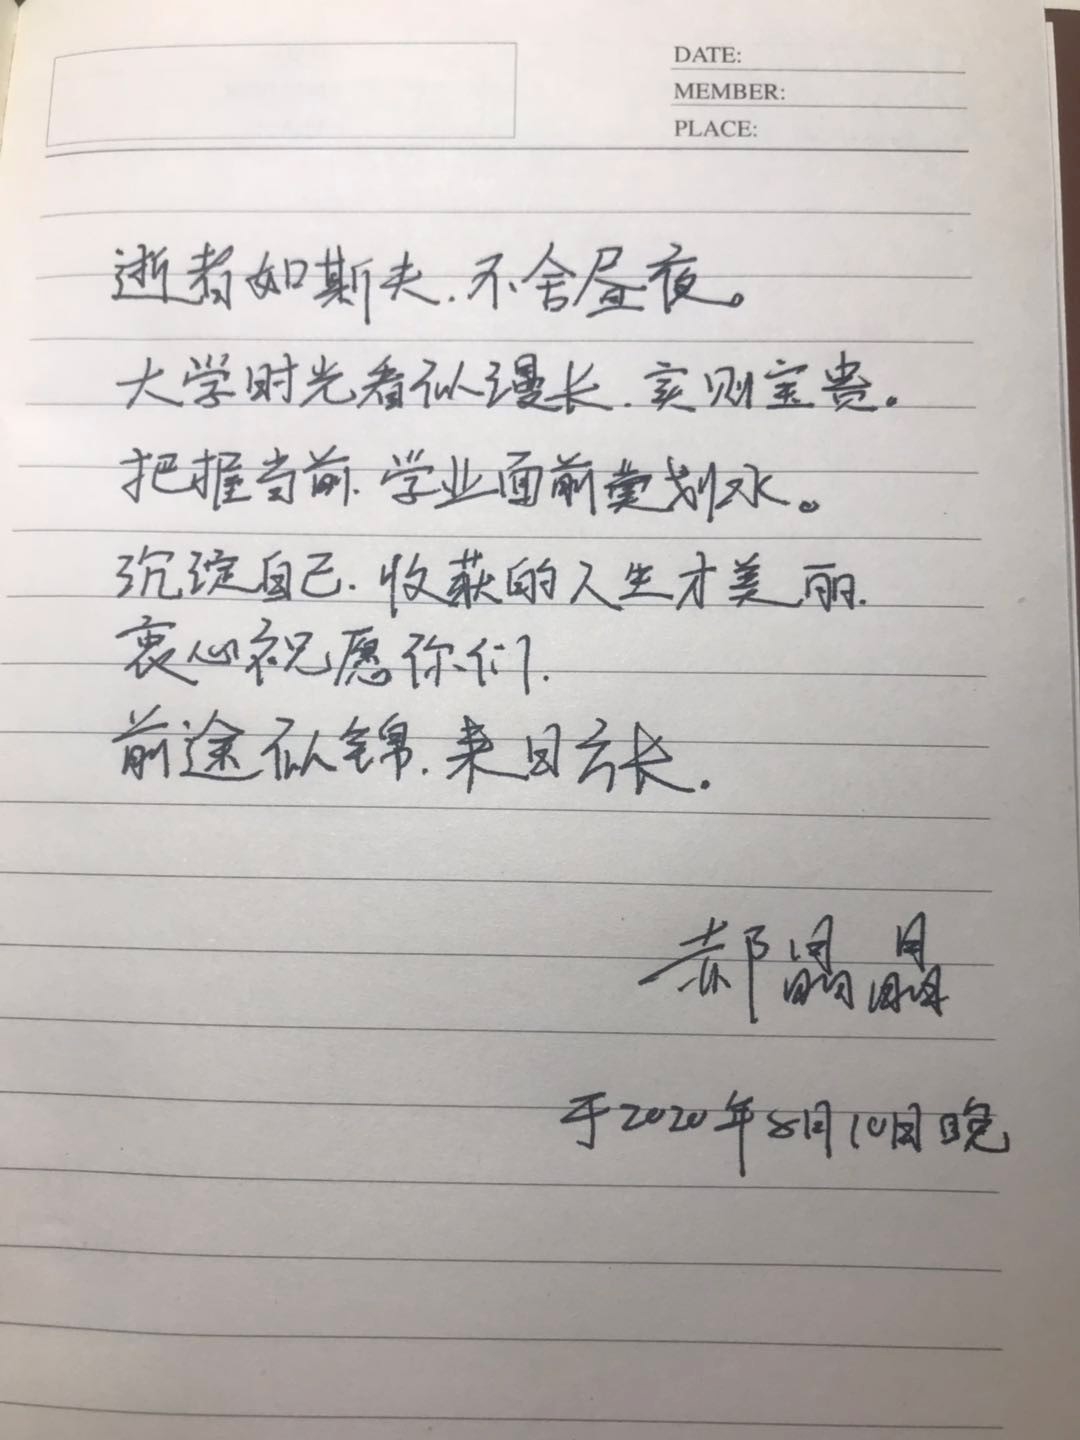 DATE:
MEMBER:
PLACE:
逝者如斯夫,不舍昼夜。
大学时光看似漫长,实则宝贵。
把握当前,学业面前莫划水。
沉淀自己,收获的人生才美丽.
衷心祝愿你们,
前途似锦,来日方长.
郝晶晶
于2020年8月10日晚